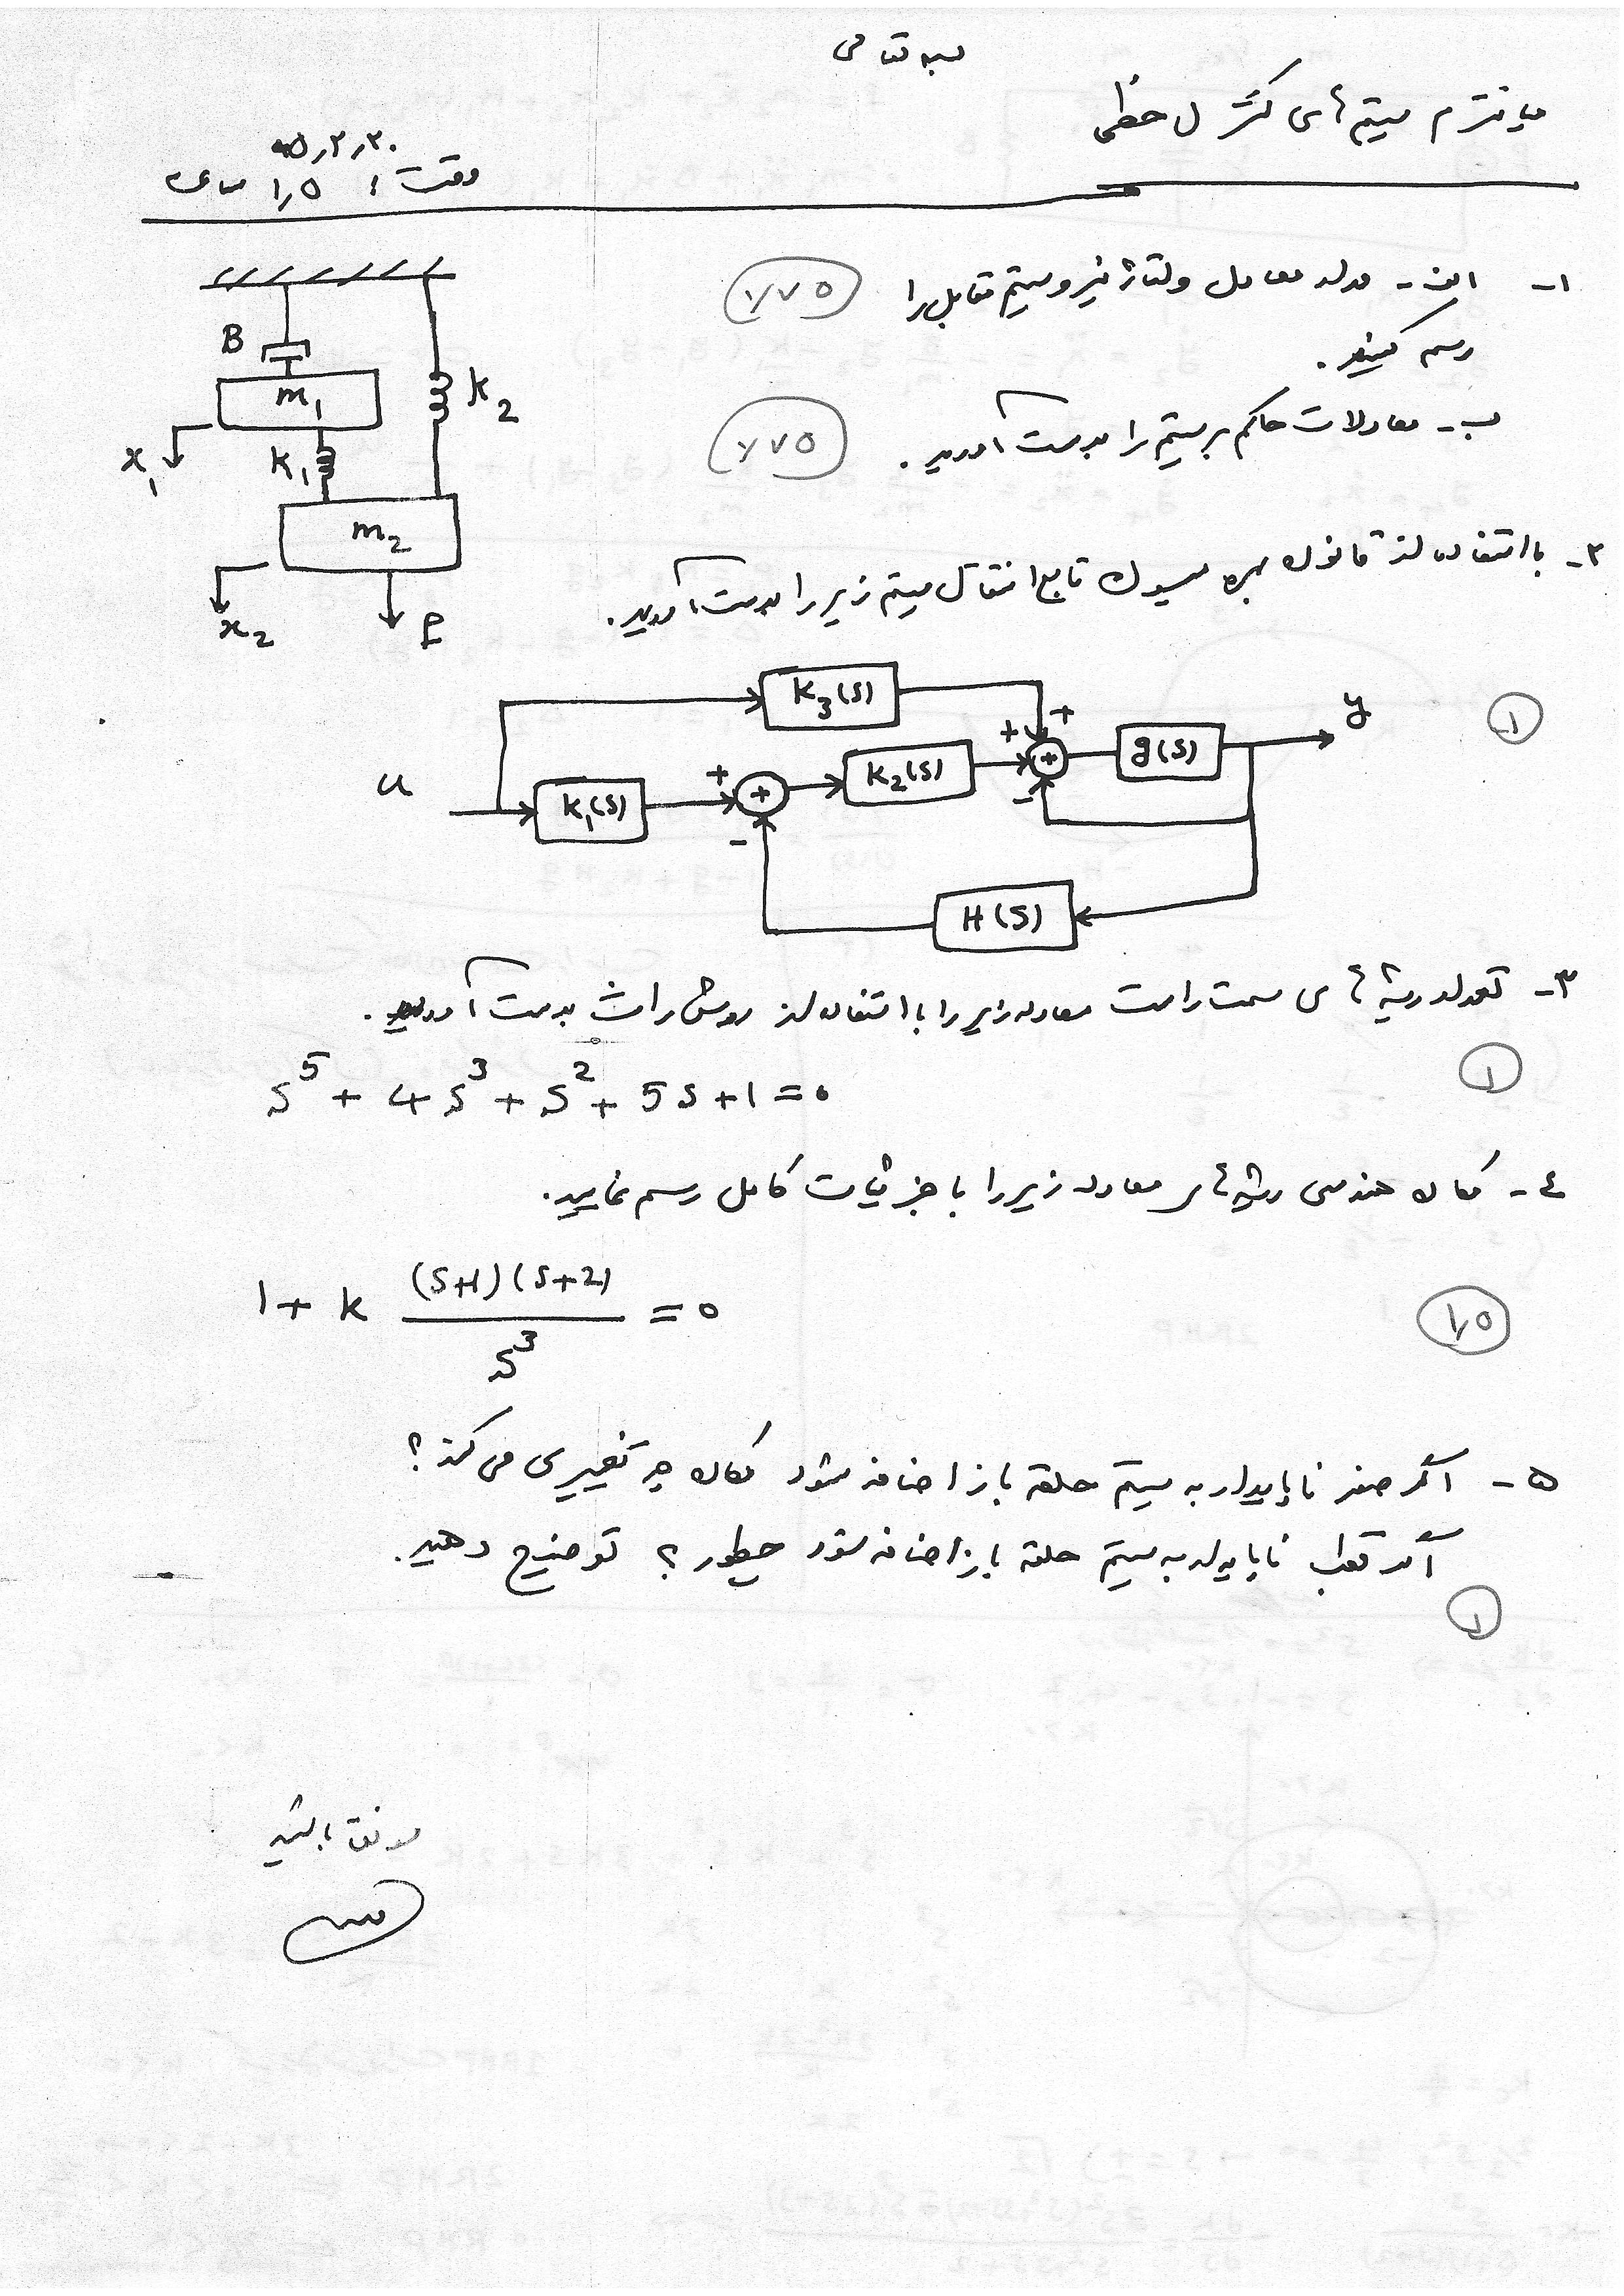 بسمه تعالی
میانترم سیستم های کنترل خطی
۹۵,۲,۲۰
وقت : ۱,۵ ساعت
۱- الف- مدار معادل ولتاژ نیرو سیستم مقابل را
۰٫۷۵
رسم کنید.
ب- معادلات حاکم بر سیستم را بدست آورید.
۰٫۷۵
B
m1
k2
x1
k1
m2
x2
F
۲- با استفاده از قانون بهره میسون تابع انتقال سیستم زیر را بدست آورید.
۱
k3(s)
y
u
k1(s)
+
+
-
k2(s)
+
+
+
-
g(s)
H(s)
۳- تعداد ریشه های سمت راست معادله زیر را با استفاده از روش راث بدست آورید.
۱
s^5 + 4s^3 + s^2 + 5s + 1 = 0
۴- مکان هندسی ریشه های معادله زیر را با جزئیات کامل رسم نمایید.
1 + k (s+1)(s+2) / s^3 = 0
۱٫۵
۵- اگر صفر ناپایدار به سیستم حلقه باز اضافه شود مکان چه تغییری می کند؟
اگر قطب ناپایدار به سیستم حلقه باز اضافه شود چطور؟ توضیح دهید.
۱
موفق باشید